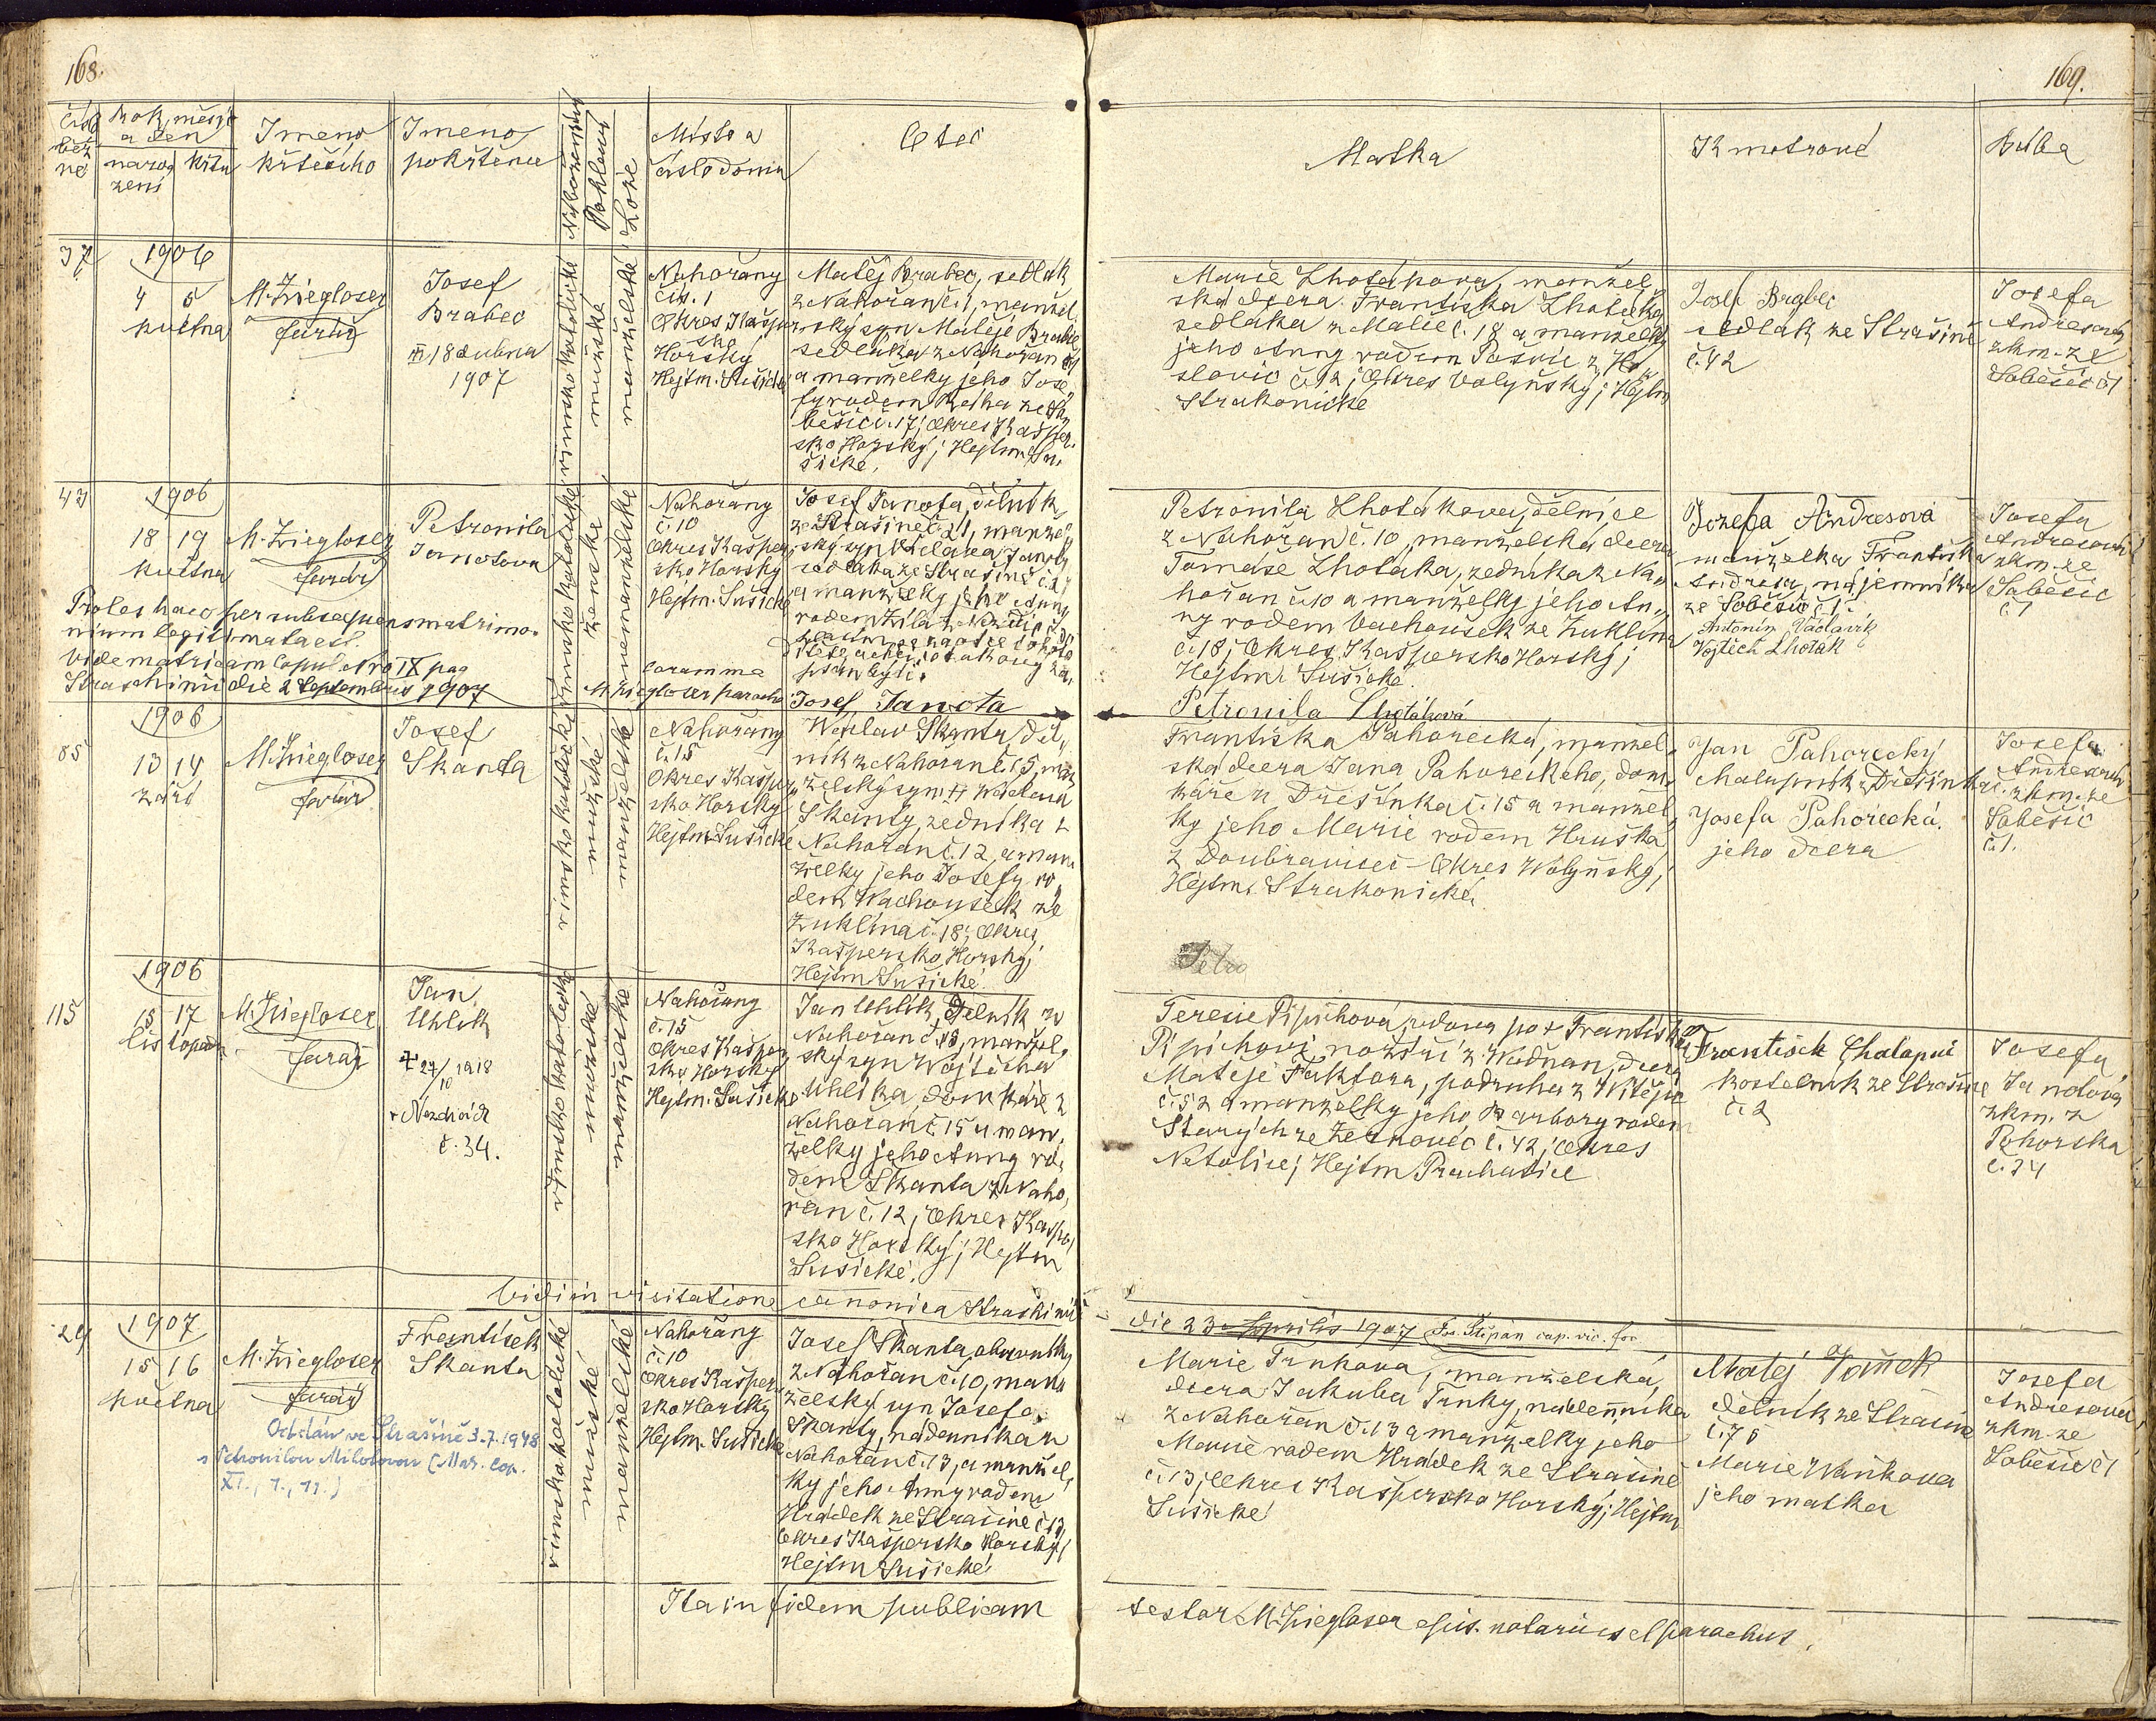 168.
Rok, měsíc
a den
naro
zení
křtu
Jméno
křtícího
Jméno
pokřtěnce
Náboženství
Pohlaví
Lože
Místo a
číslo domu
Otec
37
1906
4 5
května
M. Ziegloser
farář
Josef
Brabec
18 dubna
1907
římsko katolické
mužské
manželské
Nahořany
čís. 1
Okres Kašper
sko
Horský
Hejtm. Sušické
Matěj Brabec, sedlák
z Nahořan č. 1, manžel.
ský syn Matěje Brabce
sedláka z Nahořan č 1
a manželky jeho Jose
fy rodem
běšic č. 17; Okres Kašper.
sko Horský; Hejtm. Su.
šické.
43
1906
18 19
května
M. Ziegloser
farář
Petronila
Janotova
římsko katolické
ženské
nemanželské
Nahořany
č. 10
Okres Kašper
sko Horský
Hejtm. Sušické
Josef Janota, dělník
ze Strašíně č 21, manžel
ský syn Janoty
sedláka ze Strašíně č. 21
a manželky jeho Anny
rodem
psán býti.
Proles haec per subsequens matrimo
nium legitimata est.
Vide matricam Copul. Nro IX pag
Straschinii die 2 Septembris 1907
Coram me
M Ziegloser parocho
Josef Janota
85
1906
13 14
září
M. Ziegloser
farář
Josef
Skanta
římsko katolické
mužské
manželské
Nahořany
č. 15
Okres Kašper
sko Horský
Hejtm. Sušické
Wáclav Skanta, děl
ník z Nahořan č. 15, man
želský syn Wáclava
Skanty, zedníka z
Nahořan č. 12, a man
želky jeho Josefy ro
dem Wachoušek ze
Zuklína č. 18; Okres
Kašpersko Horský;
Hejtm Sušické.
115
1906
15 17
listopadu
M. Ziegloser
farář
Jan
Uhlík
+ 27/10 1918
v Nezdicích
č. 34.
římsko katolické
mužské
manželské
Nahořany
č. 15
Okres Kašper
sko Horský
Hejtm. Sušické
Jan Uhlík, dělník z
Nahořan č. 15, manžel
ský syn Wojtěcha
Uhlíka, domkáře z
Nahořan č. 15 a man
želky jeho Anny ro
dem Skanta z Naho
řan č. 12, Okres Kašper
sko Horský; Hejtm
Sušické.
Vidi in visitatione canonica Straschinii
29
1907
15 16
května
M. Ziegloser
farář
František
Skanta
Oddán ve Strašíně 3.7.1948
s Petronilou Milotovou (Mat. cop.
XI., 1., 11.)
římsko katolické
mužské
manželské
Nahořany
č. 10
Okres Kašper
sko Horský
Hejtm. Sušické
Josef Skanta,
z Nahořan č. 10, man
želský syn Josefa
Skanty, nádenníka z
Nahořan č. 13, a manžel
ky jeho Anny rodem
Hrádek ze Strašíně č 13,
Okres Kašpersko Horský;
Hejtm Sušické
Ita in fidem publicam
169.
Matka
Kmotrové
Bába
Marie Lhotákova, manžel
ská dcera Františka Lhotáka
sedláka z Malče č. 18 a manželky
jeho Anny rodem
slovic č. 12; Okres Volyňský; Hejtm
Strakonické
Josef Brabec
sedlák ze Strašíně
č. 42
Josefa
Andresová
zkm. ze
Soběšic č 1
Petronila Lhotákova, dělnice
z Nahořan č. 10, manželská dcera
Tomáše Lhotáka, zedníka z Na
hořan č. 10 a manželky jeho An
ny rodem Vachoušek ze Zuklína
č. 18; Okres Kašpersko Horský;
Hejtm. Sušické.
Petronila Lhotáková
Josefa Andresová
manželka Františka
Andresa, nájemníka
ze Soběšic č 1.
Antonín Václavík
Vojtěch Lhoták
Josefa
Andresová
zkm. ze
Soběšic
č. 1
Františka Pahorecká, manžel
ská dcera Jana Pahoreckého, dom
káře z Dřešínka č. 15 a manžel
ky jeho Marie rodem Hruška
z Doubravice Okres Wolyňský;
Hejtm. Strakonické.
Jan Pahorecký
chalupník z Dřešínka
Josefa Pahorecká.
jeho dcera
Josefa
Andresová
zkm. ze
Soběšic
č. 1.
Terezie Pipichová, vdova po + Františku
Pipichovi, nožíři z Wodňan, dcera
Matěje Faktora, podruha z Witějic
č. 52 a manželky jeho Barbory rodem
Starých ze Žernovic č. 42; Okres
Netolice; Hejtm Prachatice
František Chalupný
kostelník ze Strašíně
č. 2
Josefa
Janotová
zkm. z
Pohorska
č. 24
die 23 Aprilis 1907 Fr. Štěpán cap. vic. for
Marie Trnkova, manželská
dcera Jakuba Trnky, nádenníka
z Nahořan č. 13 a manželky jeho
Marie rodem Hrádek ze Strašíně
č. 13; Okres Kašpersko Horský; Hejtm
Sušické
Matěj Vaněk
dělník ze Strašíně
č. 75
Marie Waňkova
jeho matka
Josefa
Andresová
zkm. ze
Soběšic č 1
testor M. Ziegloser epis. notarius et parochus.